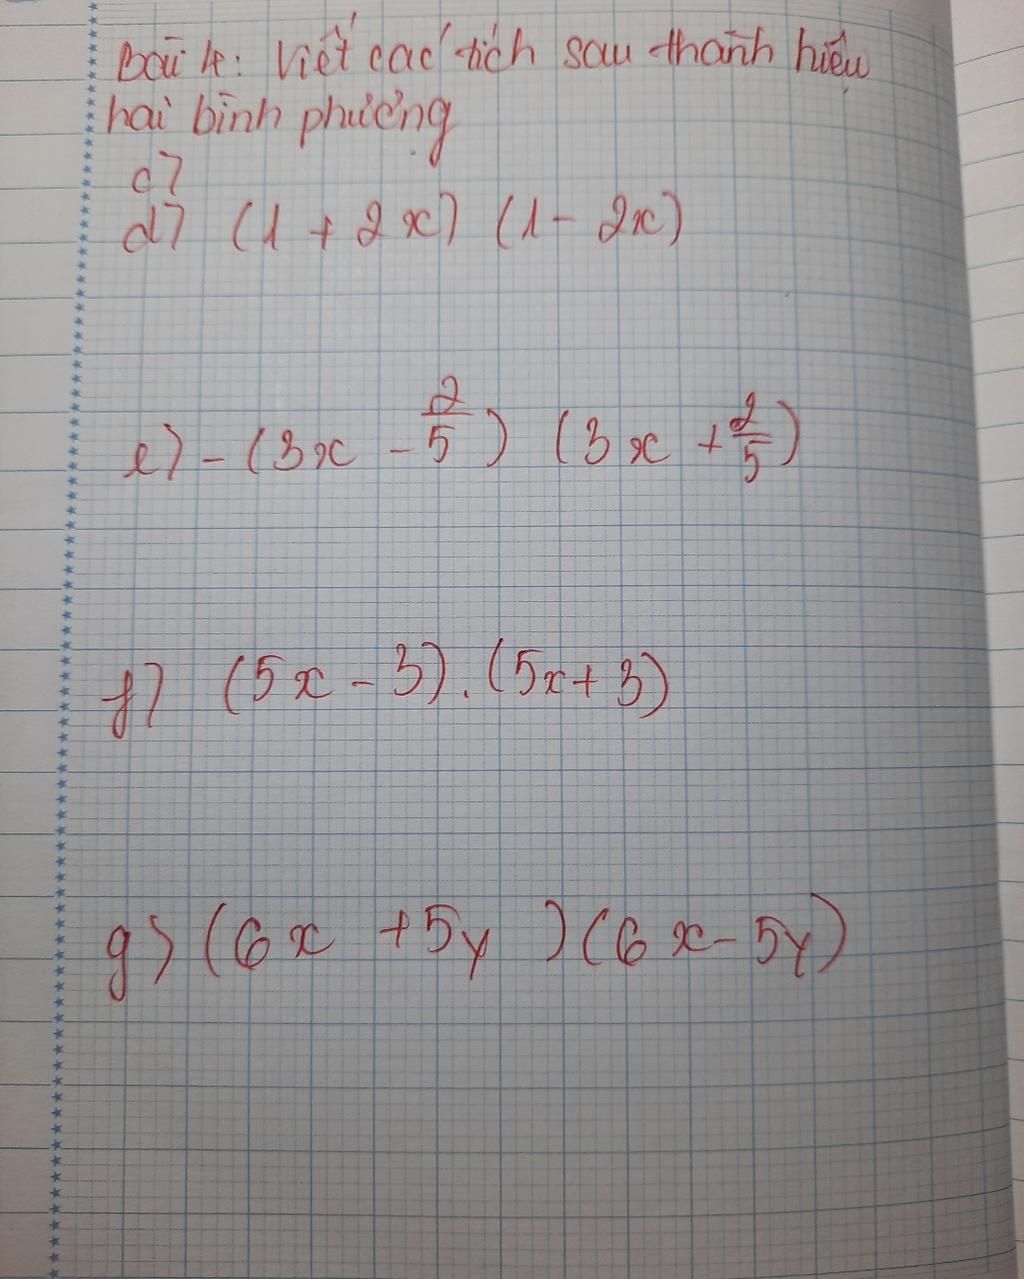 Bài 4: Viết các tích sau thành hiệu
hai bình phương
c)
d) (1 + 2x) (1 - 2x)
e) - (3x - 2/5) (3x + 2/5)
f) (5x - 3) . (5x + 3)
g) (6x + 5y) (6x - 5y)